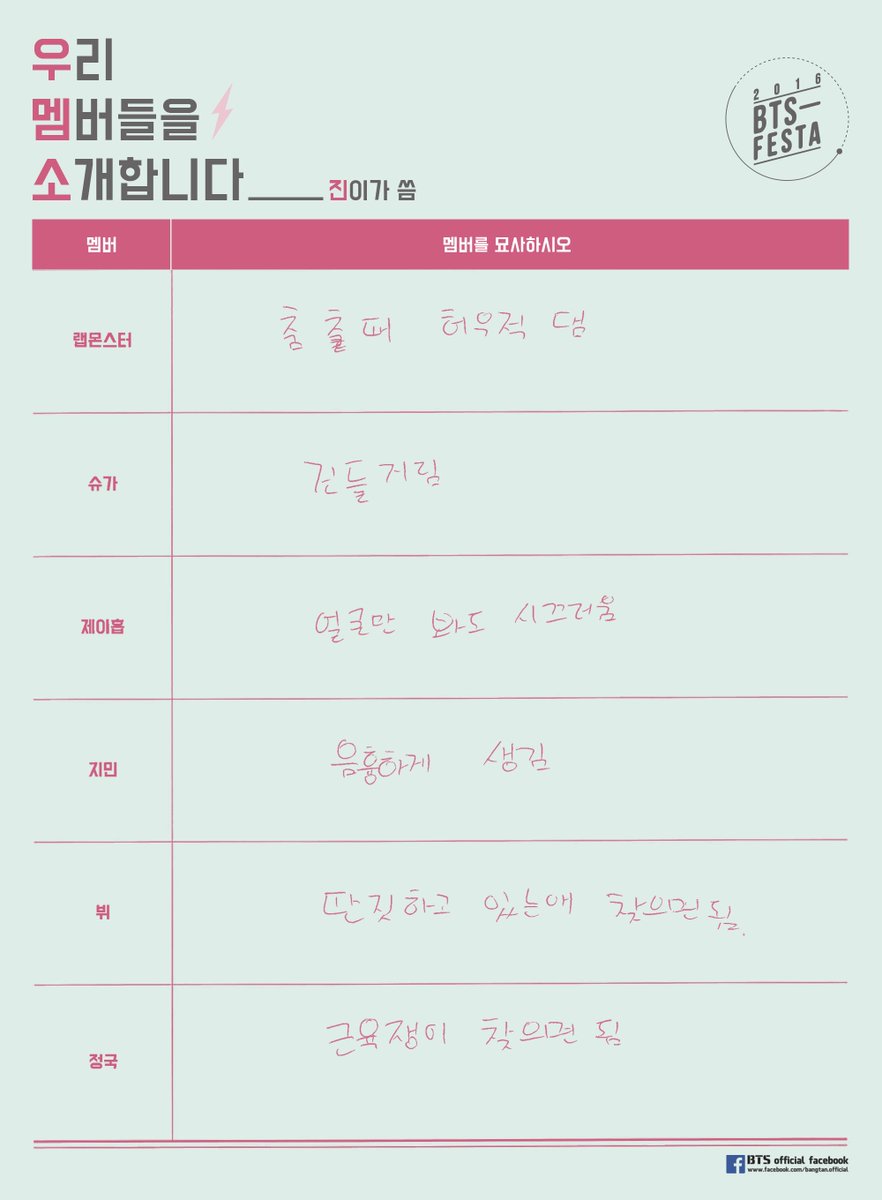 우리
멤버들을
소개합니다 진이가 씀
2016
BTS—
FESTA
멤버 멤버를 묘사하시오
랩몬스터 춤 출때 허우적 댐
슈가 건들거림
제이홉 얼굴만 봐도 시끄러움
지민 음흉하게 생김
뷔 딴짓하고 있는애 찾으면 됨.
정국 근육쟁이 찾으면 됨
f BTS official facebook
www.facebook.com/bangtan.official